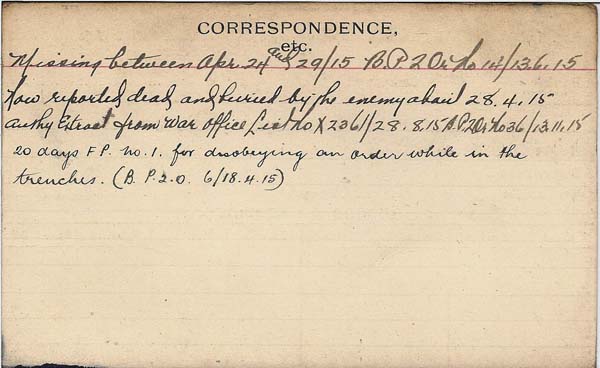 CORRESPONDENCE,
etc.
Missing between Apr. 24 and 29/15 B.P. 2 Or No 14/13.6.15
Now reported dead and buried by the enemy about 28.4.15
Authy Extract from War Office List No X2361/28.8.15 B.P. 2 Or No 36/13.11.15
20 days F.P. No. 1. for disobeying an order while in the
trenches. (B.P.2.O. 6/18.4.15)